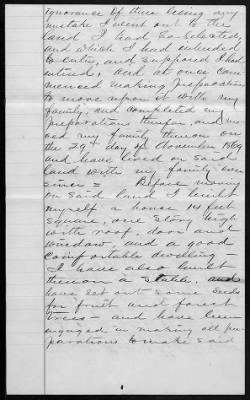 ignorance of there being any
mistake I went out to the
land I had so selected,
and which I had intended
to enter, and supposed I had
entered, and at once com
menced making preparations
to move upon it with my
family, and completed my
preparations therefor, and mo
ved my family thereon on
the 29th day of November 1869
and have lived on said
land with my family ever
since = Before moving
on said land I built
myself a house 14 feet
square, one story high
with roof, door and
window, and a good
comfortable dwelling
I have also built
thereon a stable, and
have set out some seeds
for fruit and forest
trees - and have been
engaged in making all pre
parations to make said